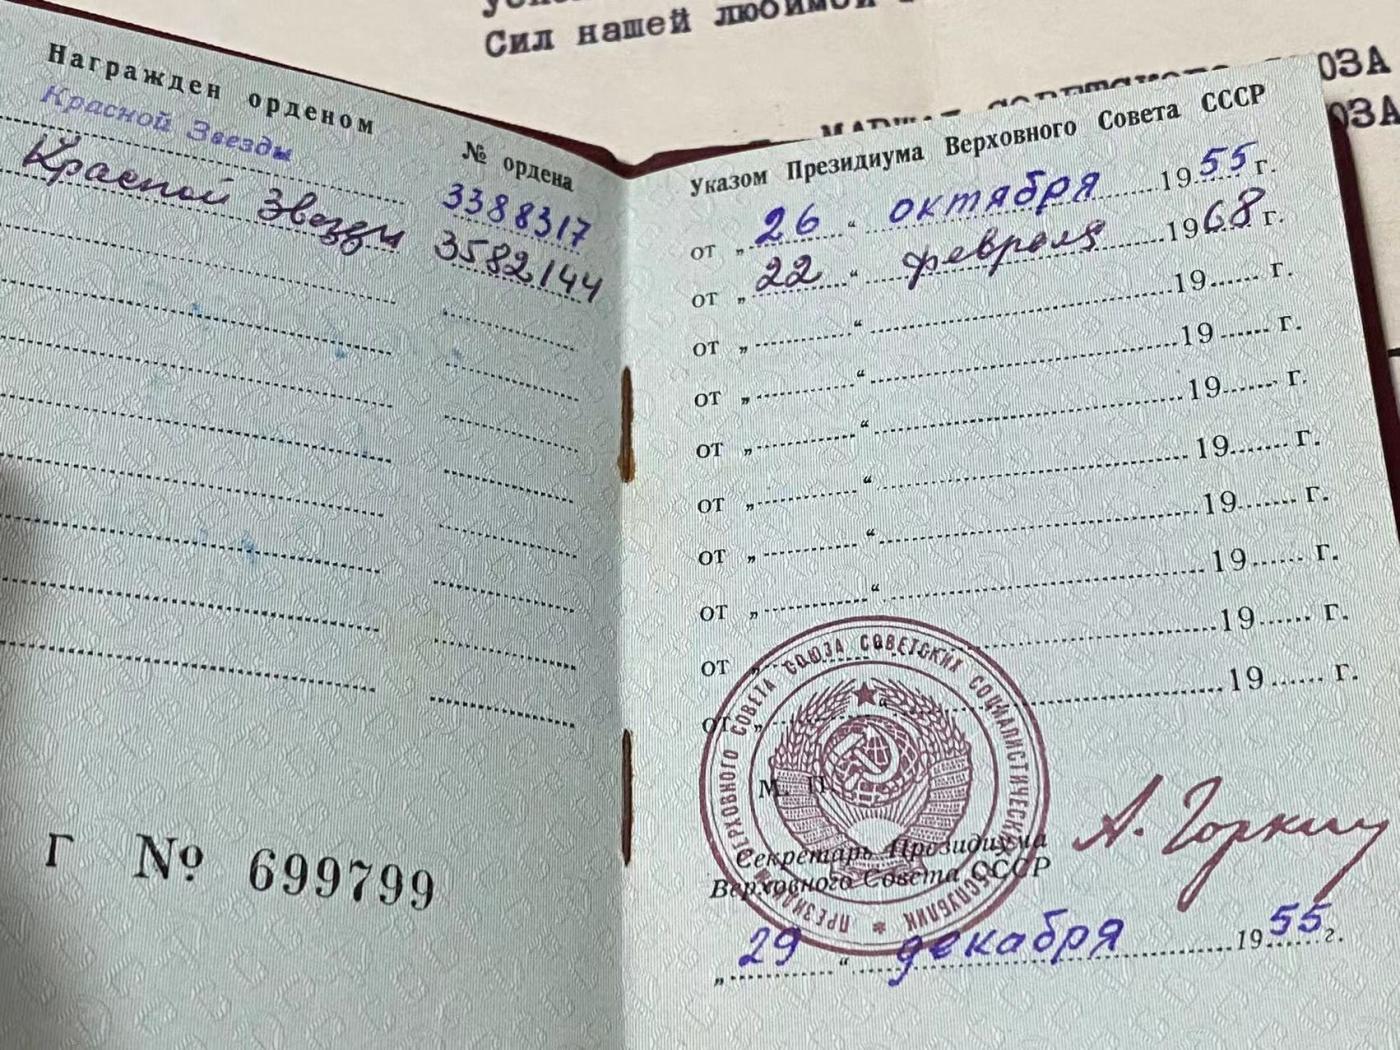 Сил нашей любимой
МАРШАЛ СОВЕТСКОГО СОЮЗА
Награжден орденом № ордена
Красной Звезды 3388317
Красной Звезды 3582144
Г № 699799
Указом Президиума Верховного Совета СССР
от „26“ октября 1955 г.
от „22“ февраля 1968 г.
от „ “ 19 г.
от „ “ 19 г.
от „ “ 19 г.
от „ “ 19 г.
от „ “ 19 г.
от „ “ 19 г.
от „ “ 19 г.
от „ “ 19 г.
ПРЕЗИДИУМ ВЕРХОВНОГО СОВЕТА СОЮЗА СОВЕТСКИХ СОЦИАЛИСТИЧЕСКИХ РЕСПУБЛИК *
М. П.
Секретарь Президиума
Верховного Совета СССР
А. Горкин
„29“ декабря 1955 г.